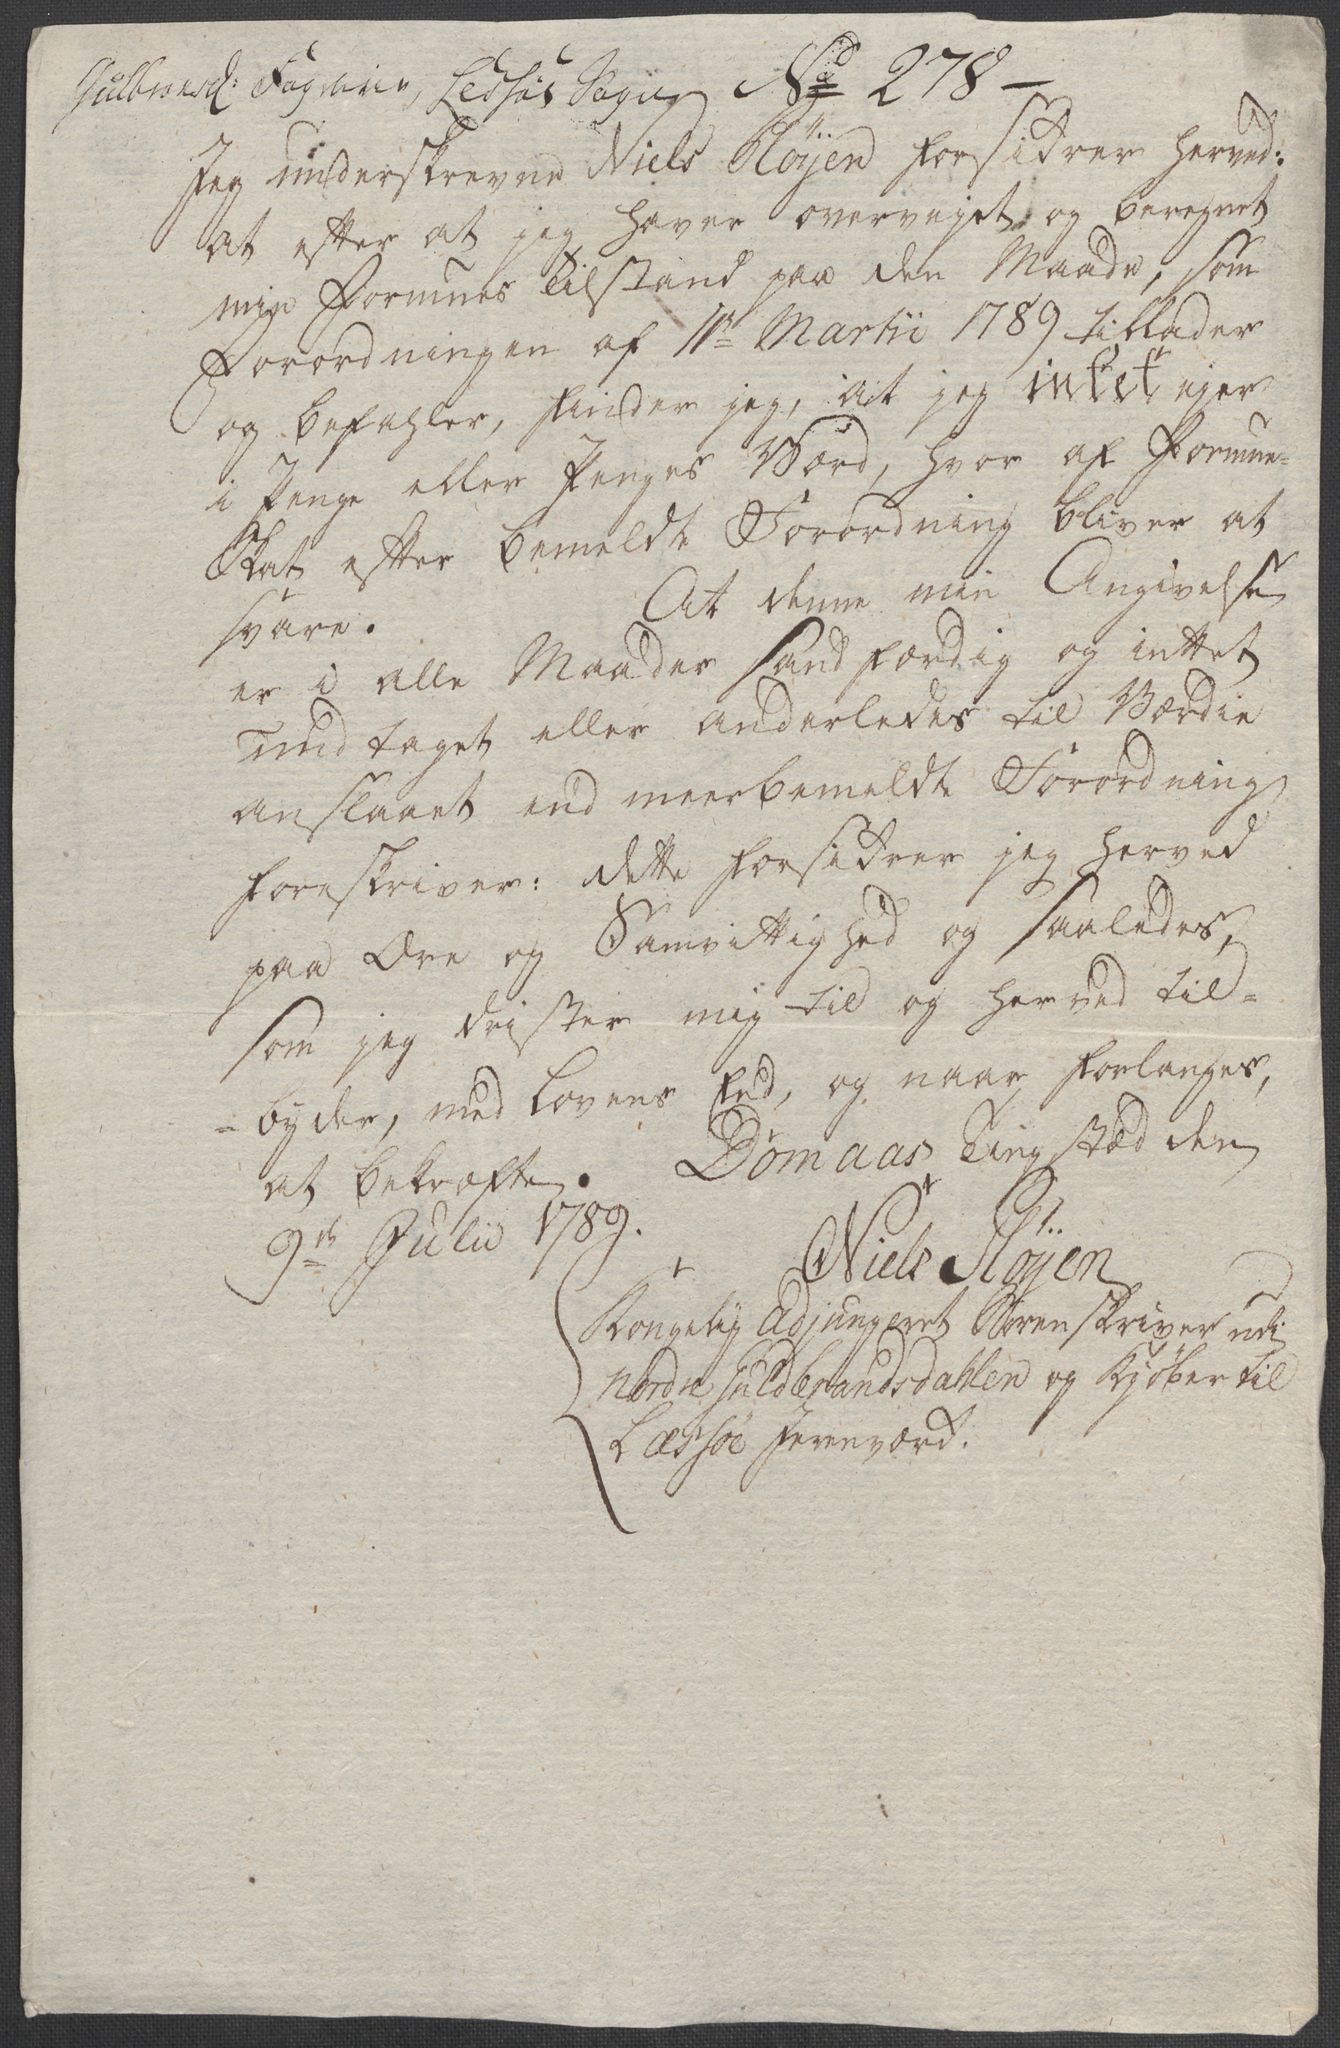 Gulbransd: Fogderie, Ledsøe Sogn No 278 -
Jeg underskrevne Niels Fløyen forsikrer herved:
at efter at jeg haver overveyet og beregnet
min Formues Tilstand paa den Maade, som
Forordningen af 11te Martii 1789 tillader
og befahler, finder jeg, at jeg intet ejer
i Penge eller Penges Værd, hvor af Formue-
Skat efter bemeldte Forordning bliver at
svare. At denne min Angivelse
er i alle Maader sandfærdig og intet
undtaget eller anderledes til Værdie
anslaaet end meerbemeldte Forordning
foreskriver: dette forsikrer jeg herved
paa Ære og Samvittighed og saaledes,
som jeg drister mig til og herved til-
-byder, med Lovens Eed, og naar forlanges,
at bekræfte. Domaas Tingstæd den
9de Julii 1789.
Niels Fløyen
Kongelig Adjungeret Sorenskriver udi
Nordre Guldbrandsdahlen og Kjøber til
Læssøe Jernværk.